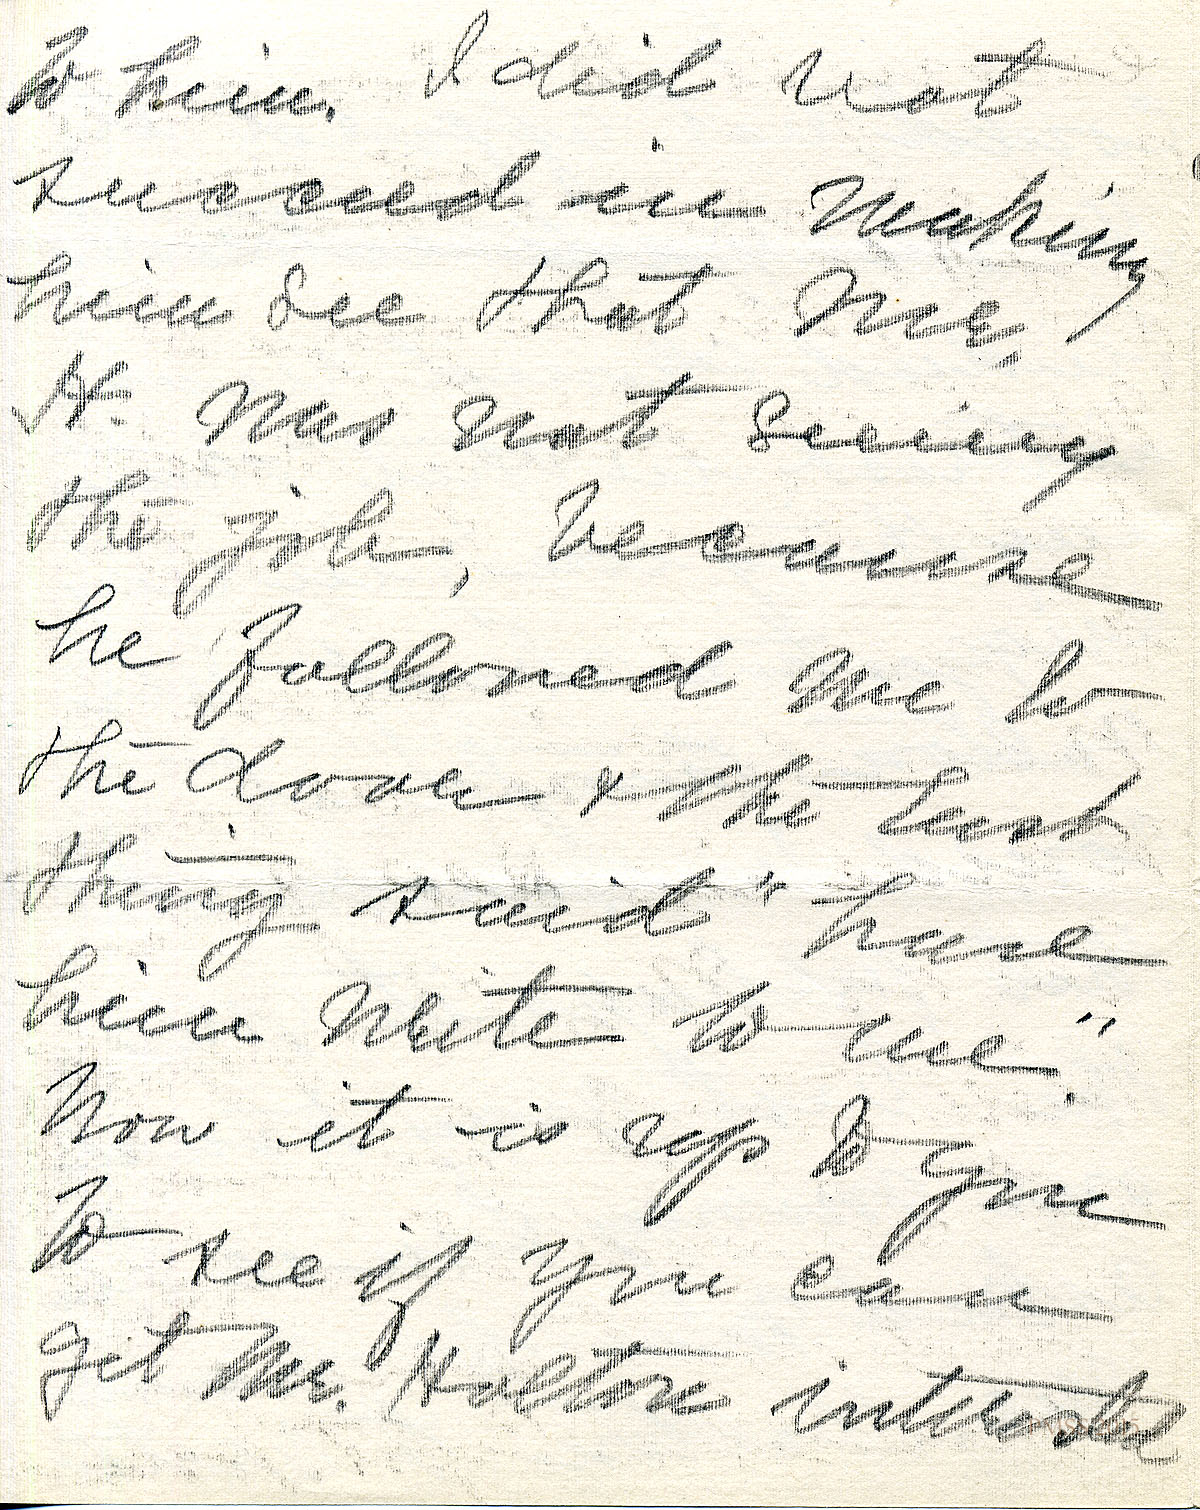 to him. I did not
succeed in making
him see that Mr.
H. was not seeing
the job, because
he followed me to
the door & the last
thing said " have
him write to me."
Now it is up to you
to see if you can
get Mr. Halton interested